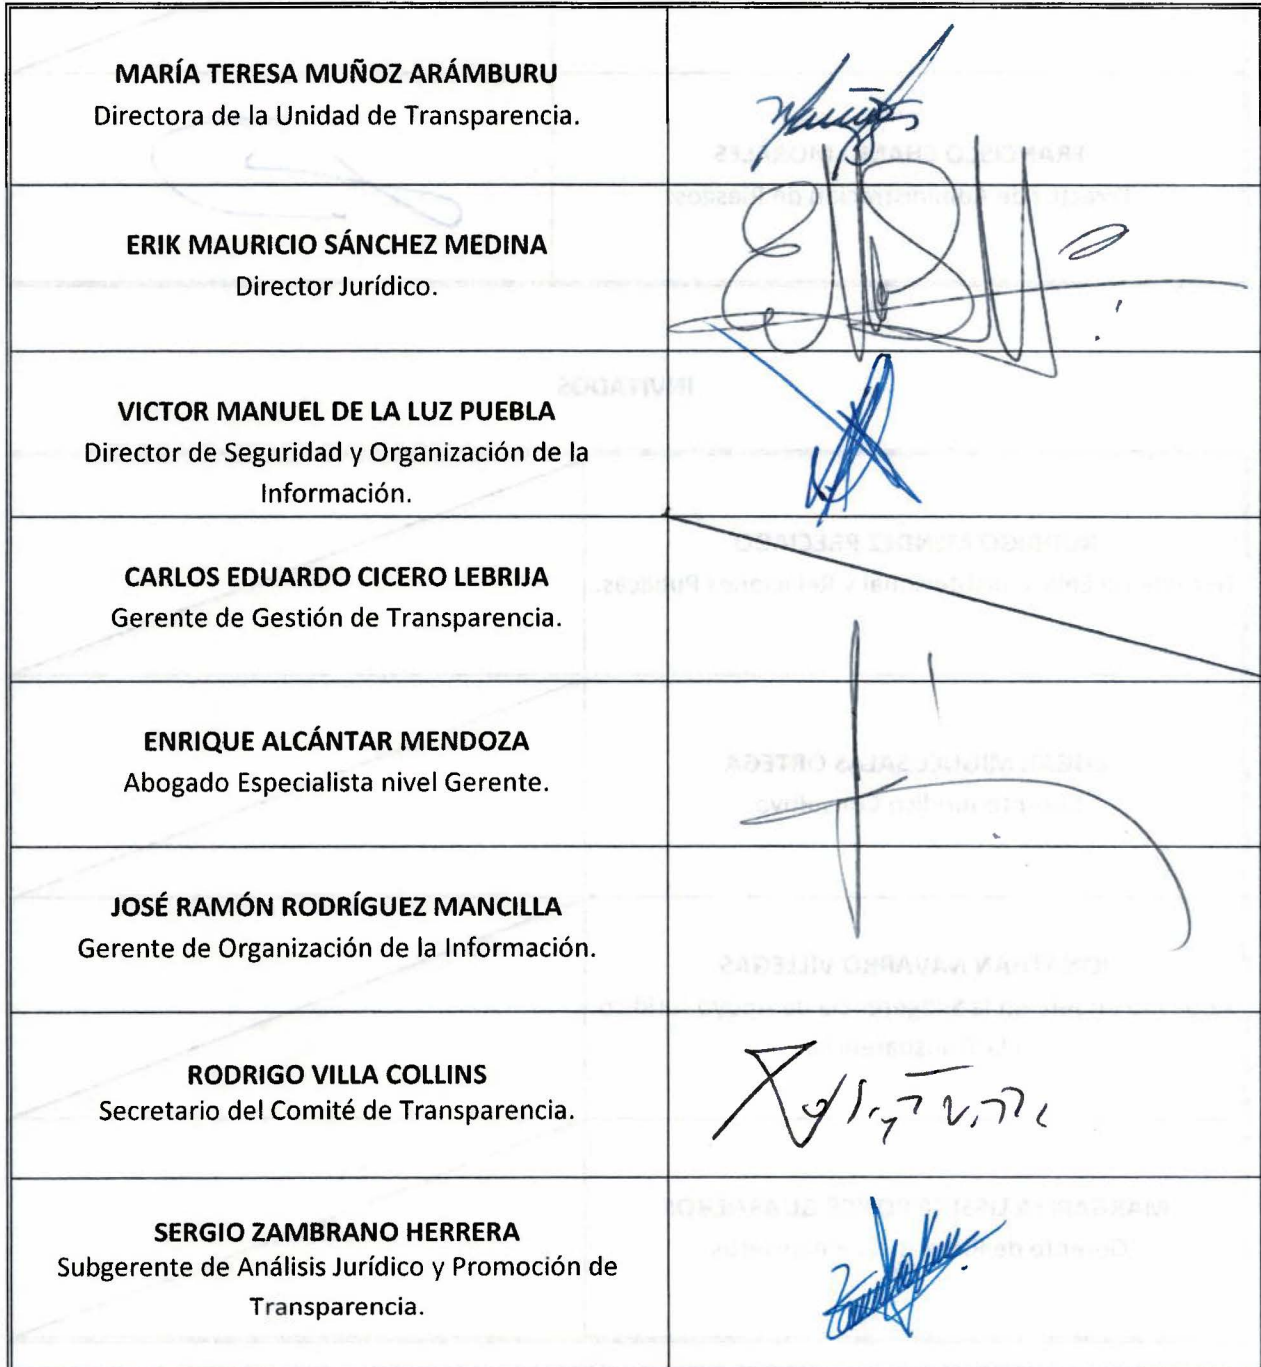 MARÍA TERESA MUÑOZ ARÁMBURU
Directora de la Unidad de Transparencia.
ERIK MAURICIO SÁNCHEZ MEDINA
Director Jurídico.
VICTOR MANUEL DE LA LUZ PUEBLA
Director de Seguridad y Organización de la
Información.
CARLOS EDUARDO CICERO LEBRIJA
Gerente de Gestión de Transparencia.
ENRIQUE ALCÁNTAR MENDOZA
Abogado Especialista nivel Gerente.
JOSÉ RAMÓN RODRÍGUEZ MANCILLA
Gerente de Organización de la Información.
RODRIGO VILLA COLLINS
Secretario del Comité de Transparencia.
SERGIO ZAMBRANO HERRERA
Subgerente de Análisis Jurídico y Promoción de
Transparencia.